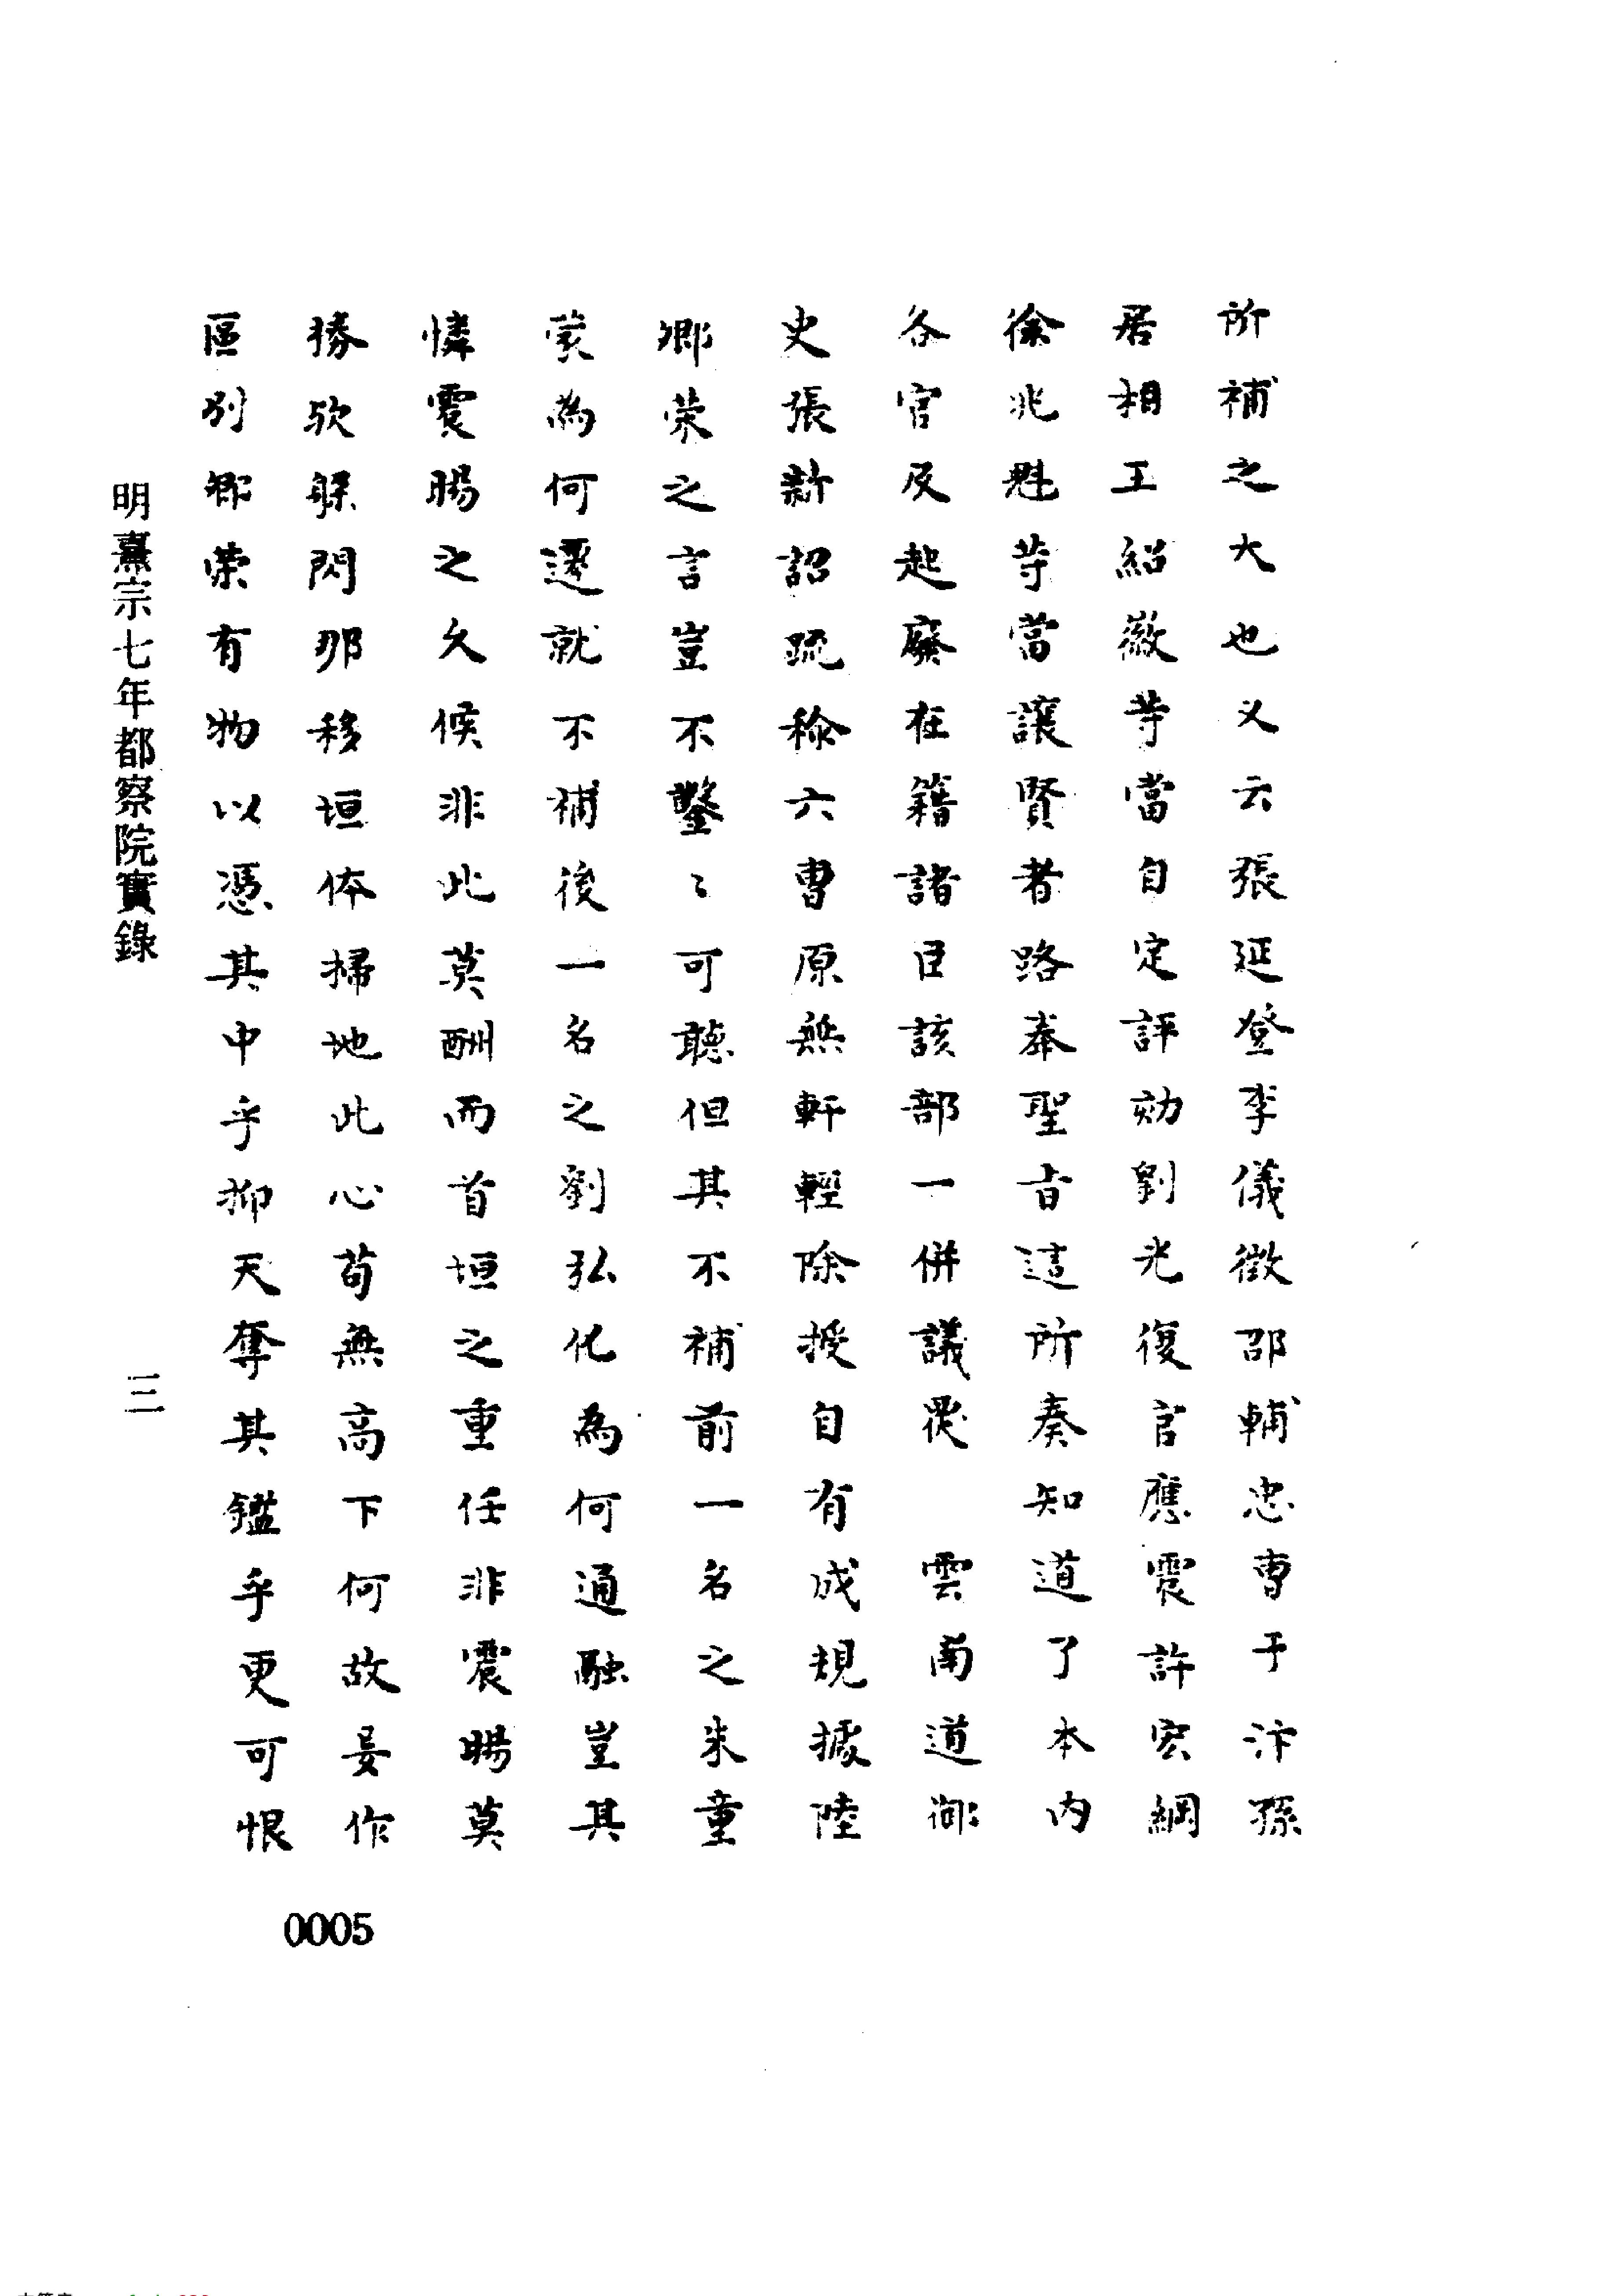 所補之大也乂云張延登李儀徵邵輔忠專于汴孫
居相王紹徽䓁當自定評効劉光復官應震許宏綱
徐兆魁䓁當讓賢者路奉聖旨這所奏知道了本内
各官及起廢在籍諸臣該部一併議從 雲南道御
史張新詔疏稱六曹原無軒輕除授自有成規據陸
卿荣之言豈不鑿〻可聽但其不補前一名之朱童
蒙為何遷就不補後一名之劉弘化為何通融豈其
憐震暘之久候非此莫酬而首垣之重任非震暘莫
勝欤躱閃那移垣体掃地此心苟無高下何故妄作
區别卿荣有物以憑其中乎抑天奪其鑑乎更可恨
明熹宗七年都察院實錄
三
0005